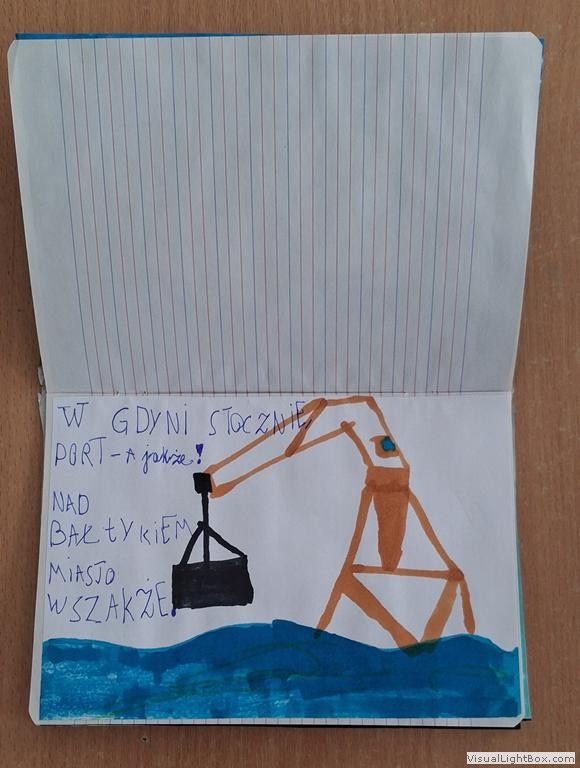 W GDYNI STOCZNIE,
PORT – A jakże!
NAD
BAŁTYKIEM
MIASTO
WSZAKŻE!
VisualLightBox.com